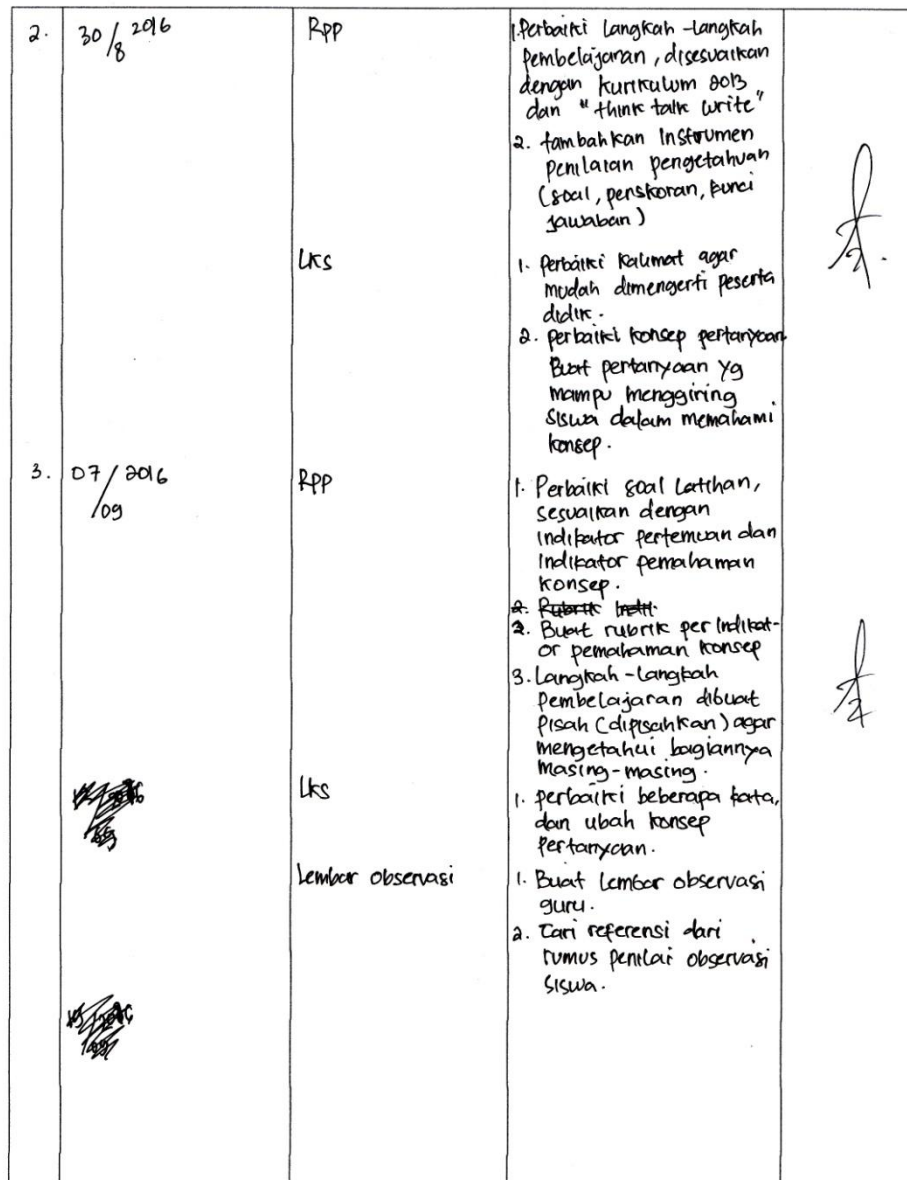 2. 30/8 2016 RPP 1. Perbaiki Langkah-langkah
pembelajaran, disesuaikan
dengan kurikulum 2013
dan "think talk write"
2. tambahkan Instrumen
penilaian pengetahuan
(soal, penskoran, kunci
jawaban)
LKS 1. perbaiki kalimat agar
mudah dimengerti peserta
didik.
2. perbaiki konsep pertanyaan
Buat pertanyaan yg
mampu menggiring
siswa dalam memahami
konsep.
3. 07/09 2016 RPP 1. Perbaiki soal Latihan,
sesuaikan dengan
indikator pertemuan dan
indikator pemahaman
konsep.
2. Rubrik
2. Buat rubrik per indikat-
or pemahaman konsep
3. Langkah-langkah
pembelajaran dibuat
pisah (dipisahkan) agar
mengetahui bagiannya
masing-masing.
LKS 1. perbaiki beberapa kata,
dan ubah konsep
pertanyaan.
Lembar observasi 1. Buat lembar observasi
guru.
2. Cari referensi dari
rumus penilai observasi
siswa.